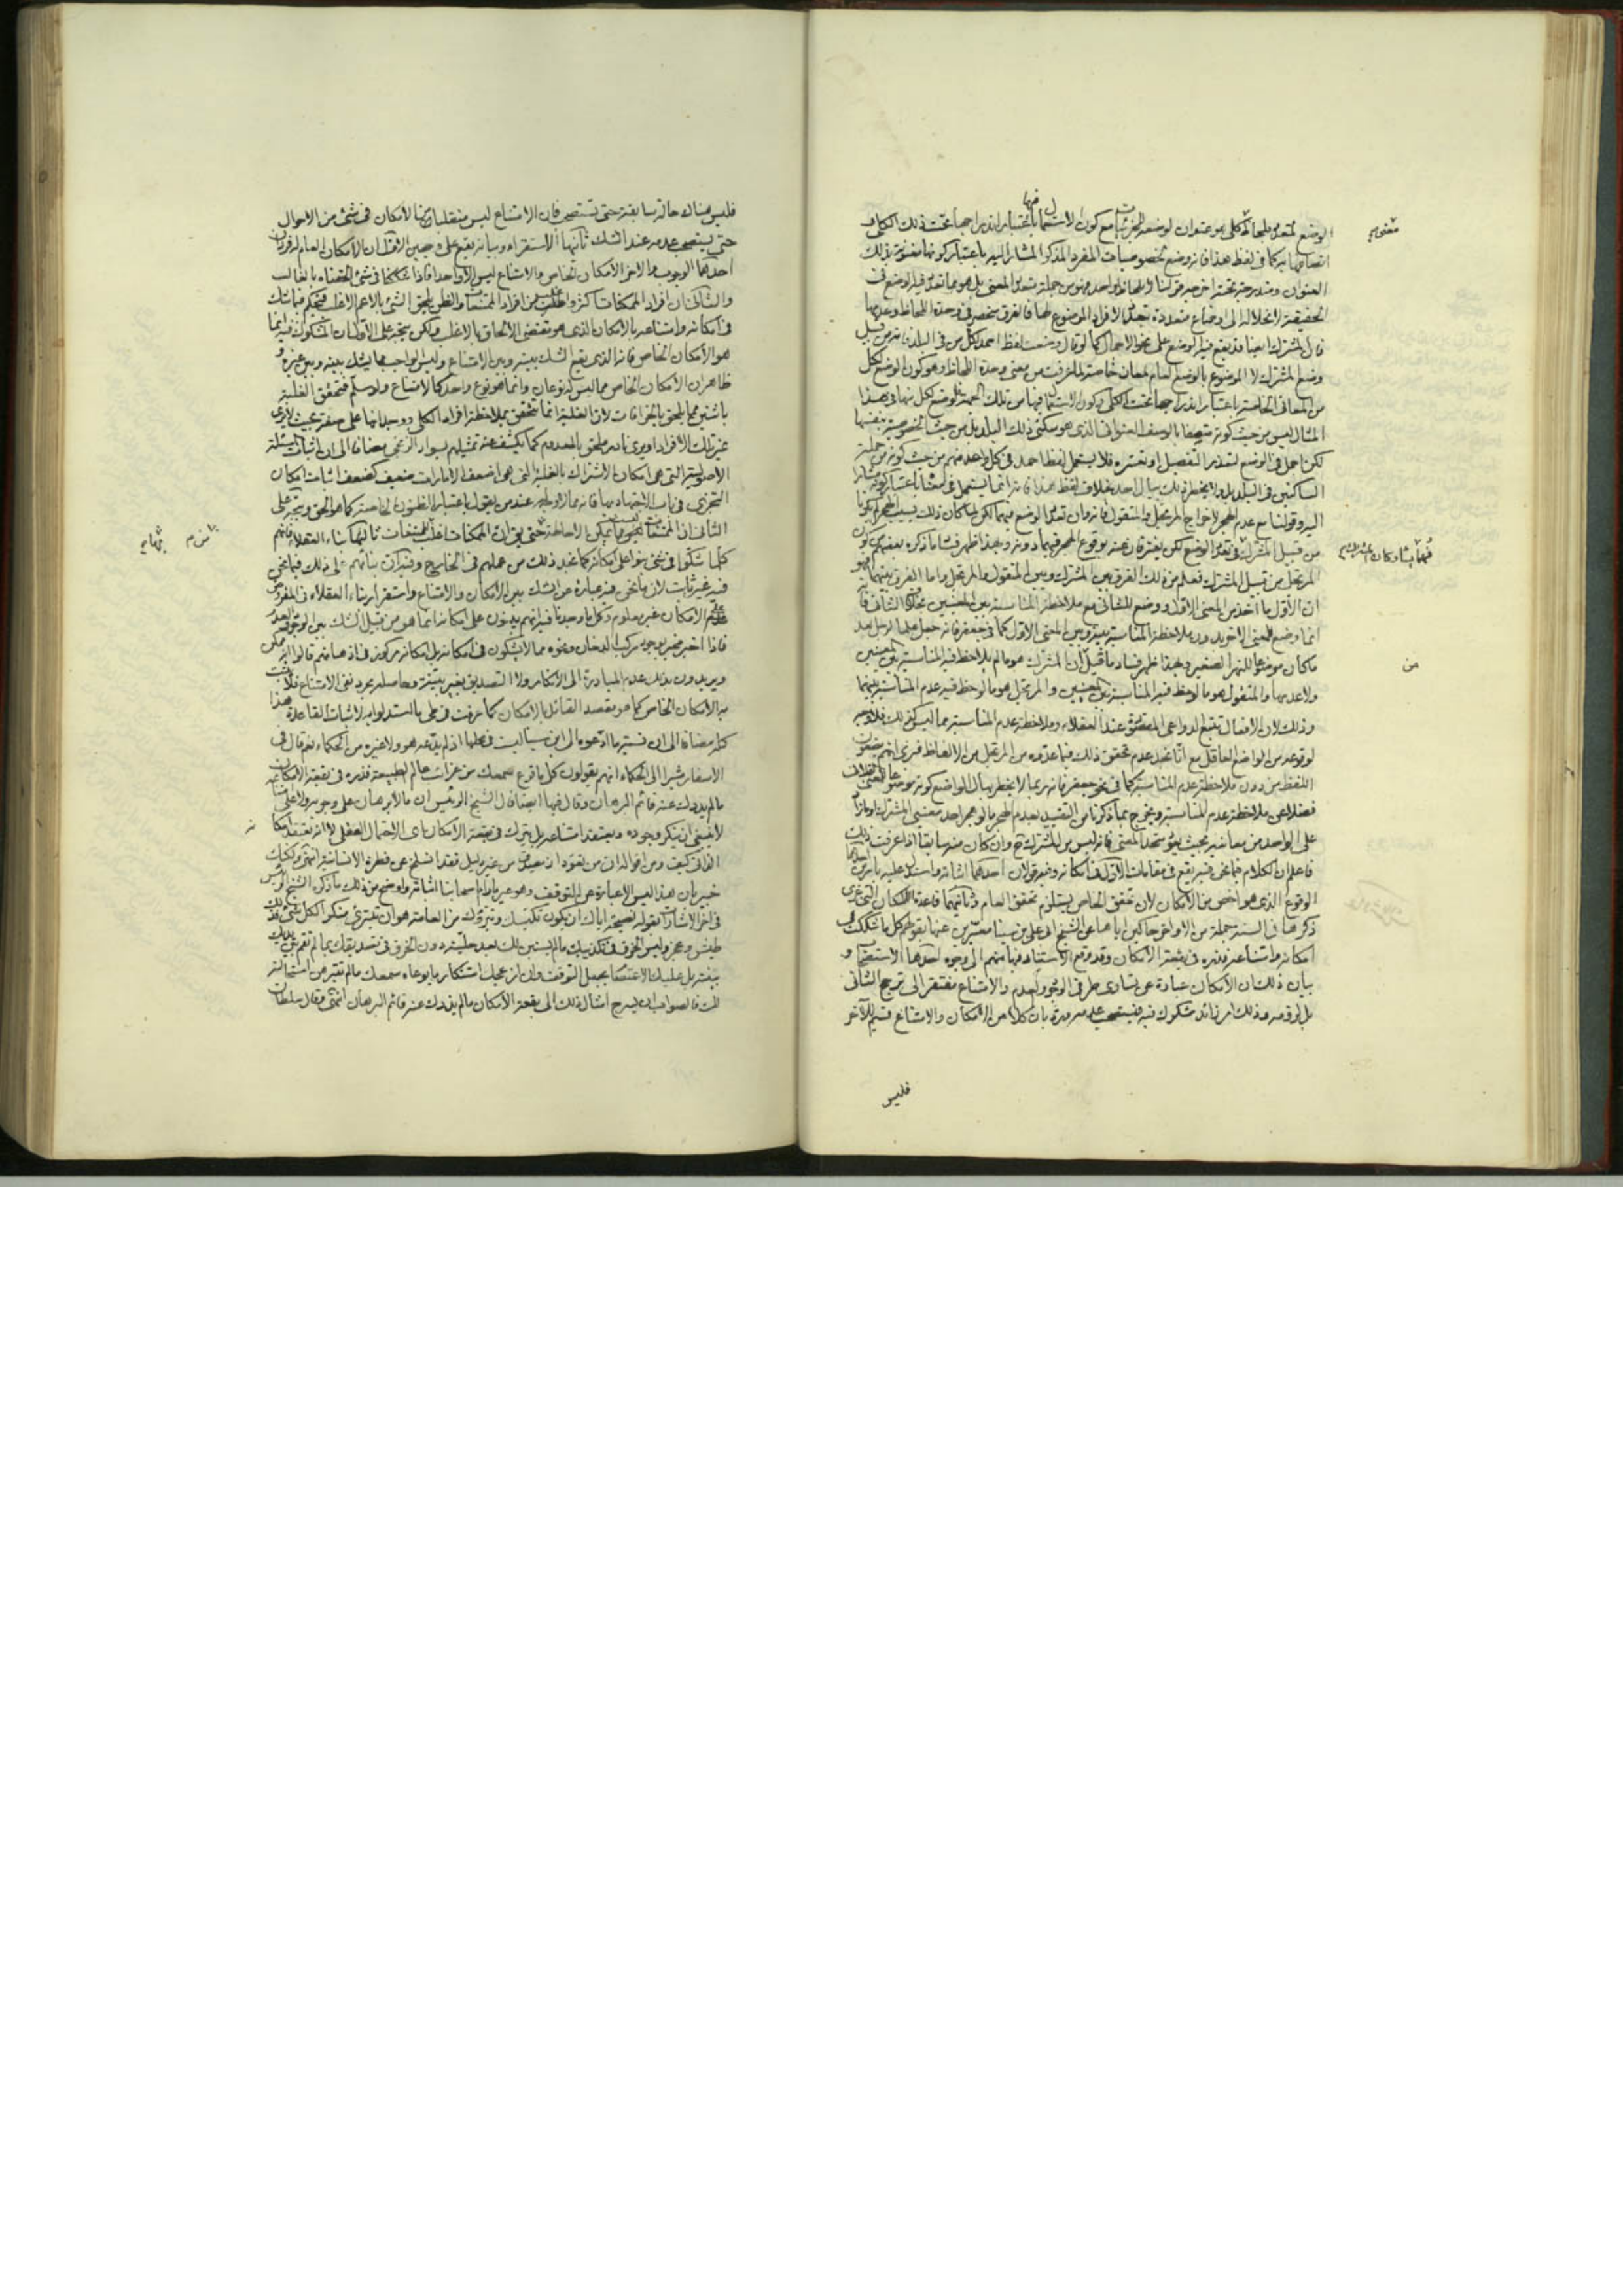 الوضع لمتعدد بلحاظ كلي هو عنوان لوضعه لجزئياته مع كون الاستعمال فيها باعتبار اندراجها تحت ذلك الكلي و
اتصافها به كما في لفظ هذا فانه وضع لخصوصيات المفرد المذكر المشار اليه باعتبار كونها معنونة بذلك
العنوان ومندرجة تحته
الحقيقة لانحلاله الى اوضاع متعددة بتعدد الافراد الموضوع لها فالفرق منحصر في وحدة اللحاظ وعدمها
فان المشترك ايضا قد يقع فيه الوضع على نحو الاجمال كما لو قال وضعت لفظ احمد لكل من في البلد فانه من قبيل
وضع المشترك لا الموضوع بالوضع العام لمعان خاصة لما عرفت من معنى وحدة اللحاظ وهو كون الوضع لكل
من المعاني الخاصة باعتبار اندراجها تحت الكلي وكون الاستعمال فيها من تلك الجهة والوضع لكل منها في هذا
المثال ليس من حيث كونه متصفا بالوصف العنواني الذي هو سكنى ذلك البلد بل من حيث الخصوصية بنفسها
لكن اجمل في الوضع لتعذر التفصيل او تعسره فلا يستعمل لفظ احمد في كل واحد منهم من حيث كونه من جملة
الساكنين في البلد بل ولا يخطر ذلك ببال احد بخلاف لفظ هذا فانه انما يستعمل في معناه باعتبار كونه مشارا
اليه وقولنا مع عدم الهجر لاخراج المرتجل والمنقول فانه وان تعدد الوضع فيهما لكن لما كان ذلك بسبب الهجر لم يكونا
من قبيل المشترك في تعدد الوضع لكن يفترقان عنه بوقوع الهجر فيهما دونه وبهذا ظهر فساد ما ذكره بعضهم من كون
المرتجل من قبيل المشترك فعلم من ذلك الفرق بين المشترك وبين المنقول والمرتجل واما الفرق بينهما فهو
ان الأول ما اخذ من المعنى الاول ووضع للثاني مع ملاحظة المناسبة بين المعنيين بخلاف الثاني فانه
انما وضع للمعنى الاخر بدون ملاحظة المناسبة بينه وبين المعنى الاول كما في جعفر فانه جعل علما لرجل بعد
ما كان موضوعا للنهر الصغير فبهذا ظهر فساد ما قيل ان المشترك هو ما لم يلاحظ فيه المناسبة بين المعنيين
ولا عدمها والمنقول هو ما لوحظ فيه المناسبة بين المعنيين والمرتجل هو ما لوحظ فيه عدم المناسبة بينهما
وذلك لان الافعال تتبع الدواعي المقصودة عند العقلاء وملاحظة عدم المناسبة مما ليس كذلك فلا وجه
لوقوعه من الواضع العاقل مع انا نجد عدم تحقق ذلك فيما عدوه من المرتجل من الالفاظ فنرى انهم يضعون
اللفظ من دون ملاحظة عدم المناسبة كما في نحو جعفر فانه ربما لا يخطر ببال الواضع كونه موضوعا للمعنى
فضلا عن ملاحظة عدم المناسبة ويخرج بما ذكرنا من التقييد بعدم الهجر ما لو هجر احد معنيي المشترك
على الواحد من معانيه بحيث يكون متحد المعنى فانه ليس من المشترك ح وان كان منه سابقا اذا عرفت ذلك
فاعلم ان الكلام فيما نحن فيه يقع في مقامات الاول في امكانه وفيه قولان احدهما اثباته واستدل عليه بامرين احدهما
الوقوع الذي هو اخص من الامكان لان تحقق الخاص يستلزم تحقق العام وثانيهما قاعدة الامكان التي جرى
ذكرها في السنة جملة من الاواخر حاكين اياها عن الشيخ ابي علي بن سينا معبرين عنها بقولهم كل ما شككت في
امكانه وامتناعه فذره في بقعة الامكان وقد وقع الاستناد فيها منهم الى وجوه احدها الاستصحاب و
بيان ذلك ان الامكان عبارة عن تساوي طرفي الوجود والعدم والامتناع مفتقر الى ترجح الثاني
بل لزومه وذلك امر زائد مشكوك فيه فيستصحب عدمه ورد بان كلا من الامكان والامتناع قسيم للآخر
فليس
من
فليس هناك حالة سابقة حتى تستصحب فان الامتناع ليس منقلبا الى الامكان في شيء من الاحوال
حتى يستصحب عدمه عند الشك ثانيها الاستقراء وبيانه يقع على وجهين الاول ان الامكان العام له فردان
احدهما الوجوب والاخر الامكان الخاص والامتناع ليس الا واحدا فاذا شككنا في شيء الحقناه بالغالب
والثاني ان افراد الممكنات اكثر واغلب من افراد الممتنعات والظن يلحق الشيء بالاعم الاغلب فيحكم فيما شك
في امكانه وامتناعه بالامكان الذي هو مقتضى الالحاق بالاغلب ولكن يتجه على الاول ان المشكوك فيه انما
هو الامكان الخاص فانه الذي يقع الشك بينه وبين الامتناع وليس الواجب مما يشك بينه وبين غيره و
ظاهر ان الامكان الخاص مما ليس له نوعان وانما هو نوع واحد كالامتناع ولو سلم فتحقق الغلبة
باثنين مما يلحق بالخرافات لان الغلبة انما تتحقق بملاحظة افراد الكلي ووجدانها على صفة بحيث لا يرى
غير تلك الافراد او يرى نادر ملحق بالمعدوم كما يكشف عنه تمثيلهم بسواد الزنجي مضافا الى ان اثبات المسئلة
الاصولية التي هي امكان الاشتراك بالغلبة التي هي اضعف الامارات ضعيف كضعف اثبات امكان
التجزي في باب الاجتهاد بها فانه مما لا وجه له عند من يقول باعتبار الظنون الخاصة كما هو الحق ويتجه على
الثاني ان الممتنعات ليست مما يمكن الاحاطة بها حتى يقال ان الممكنات اغلب الممتنعات ثالثها بناء العقلاء فانهم
كلما شكوا في شيء بنوا على امكانه كما نجد ذلك من عملهم في الخارج وفيه ان بنائهم على ذلك فيما نحن
فيه غير ثابت لان ما نحن فيه عبارة عن الشك بين الامكان والامتناع واستقرار بناء العقلاء في المفروض
على الامكان غير معلوم وكل ما وجدنا فيه انهم يبنون على امكانه انما هو من قبيل الشك بين الوقوع وعدمه
فاذا اخبر مخبر بوجود مركب الدخان ونحوه مما لا يشكون في امكانه بل امكانه مركوز في اذهانهم قالوا انه ممكن
ويريدون بذلك عدم المبادرة الى الانكار ولا التصديق بغير بينة وحاصله مجرد نفي الامتناع فلا يثبت
به الامكان الخاص كما هو مقصد القائل بالامكان كما عرفت في طي ما استدلوا به لاثبات القاعدة هذا
كله مضافا الى ان نسبة ما ادعوه الى ابن سينا ليست في محلها اذ لم يدعه هو ولا غيره من الحكماء نعم قال في
الاسفار مشيرا الى الحكماء انهم يقولون كل ما قرع سمعك من غرائب عالم الطبيعة فذره في بقعة الامكان
ما لم يذدك عنه قائم البرهان وقال فيها ايضا قال الشيخ الرئيس ان ما لا برهان على وجوبه ولا على امتناعه
لا ينبغي ان ينكر وجوده ويعتقد امتناعه بل يترك في بقعة الامكان اي الاحتمال العقلي لا انه يعتقد امكانه
الذاتي كيف ومن اقواله ان من تعود ان يصدق من غير دليل فقد انسلخ عن فطرة الانسانية انتهى ولكنك
خبير بان هذا ليس الا عبارة عن التوقف
في اخر الاشارات بقوله نصيحة اياك ان يكون تكيسك وتبرؤك من العامة هو ان تنبري منكرا لكل شيء فذلك
طيش وعجز وليس الخرق في تكذيبك ما لم يستبن لك بعد جليته دون الخرق في تصديقك بما لم تقم بين يديك
بينة بل عليك الاعتصام بحبل التوقف وان ازعجك استنكار ما يوعاه سمعك ما لم تتبرهن استحالته
لك فالصواب ان يسرح امثال ذلك الى بقعة الامكان ما لم يذدك عنه قائم البرهان انتهى وقال سلطان